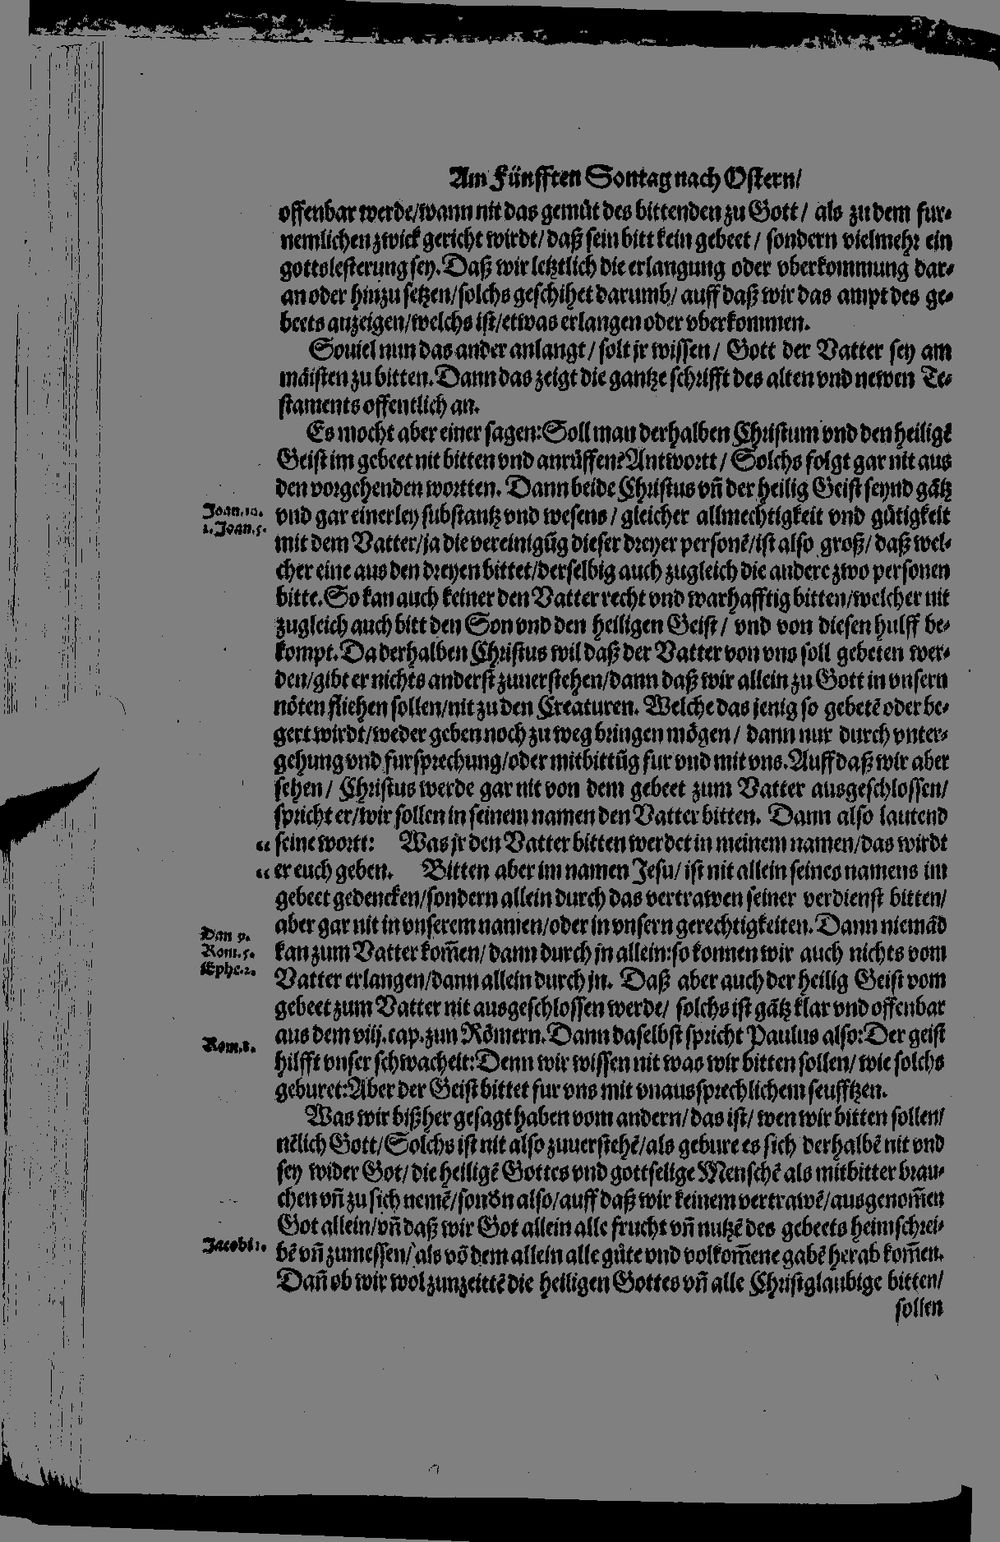 Am Fünfften Sontag nach Ostern/
offenbar werde/wann nit das gemüt des bittenden zu Gott/ als zu dem fur-
nemlichen zwick gericht wirdt/daß sein bitt kein gebeet/ sondern vielmehr ein
gottslesterung sey. Daß wir letztlich die erlangung oder vberkommung dar-
an oder hinzu setzen/solchs geschihet darumb/ auff daß wir das ampt des ge-
beets anzeigen/welchs ist/etwas erlangen oder vberkommen.
Souiel nun das ander anlangt/ solt jr wissen/ Gott der Vatter sey am
mäisten zu bitten. Dann das zeigt die gantze schrifft des alten vnd newen Te-
staments offentlich an.
Es mocht aber einer sagen: Soll man derhalben Christum vnd den heiligē
Geist im gebeet nit bitten vnd anrüffen? Antwortt/ Solchs folgt gar nit aus
den vorgehenden wortten. Dann beide Christus vñ der heilig Geist seynd gātz
Joan.10. vnd gar einerley substantz vnd wesens/ gleicher allmechtigkeit vnd gütigkeit
1.Joan.5. mit dem Vatter/ja die vereinigūg dieser dreyer personē/ist also groß/ daß wel-
cher eine aus den dreyen bittet/derselbig auch zugleich die andere zwo personen
bitte. So kan auch keiner den Vatter recht vnd warhafftig bitten/welcher nit
zugleich auch bitt den Son vnd den heiligen Geist/ vnd von diesen hulff be-
kompt. Da derhalben Christus wil daß der Vatter von vns soll gebeten wer-
den/gibt er nichts anderst zuuerstehen/dann daß wir allein zu Gott in vnsern
nöten fliehen sollen/nit zu den Creaturen. Welche das jenig so gebetē oder be-
gert wirdt/weder geben noch zu weg bringen mögen/ dann nur durch vnter-
gehung vnd fursprechung/oder mitbittūg fur vnd mit vns. Auff daß wir aber
sehen/ Christus werde gar nit von dem gebeet zum Vatter ausgeschlossen/
spricht er/wir sollen in seinem namen den Vatter bitten. Dann also lautend
“ seine wort: Was jr den Vatter bitten werdet in meinem namen/das wirdt
“ er euch geben. Bitten aber im namen Jesu/ ist nit allein seines namens im
gebeet gedencken/sondern allein durch das vertrawen seiner verdienst bitten/
aber gar nit in vnserem namen/oder in vnsern gerechtigkeiten. Dann niemād
Dan 9.
Rom.5. kan zum Vatter kom̃en/ dann durch jn allein: so konnen wir auch nichts vom
Ephe.2. Vatter erlangen/dann allein durch jn. Daß aber auch der heilig Geist vom
gebeet zum Vatter nit ausgeschlossen werde/ solchs ist gātz klar vnd offenbar
aus dem viij. cap. zun Römern. Dann daselbst spricht Paulus also: Der geist
Rom.8. hilfft vnser schwacheit: Denn wir wissen nit was wir bitten sollen/ wie solchs
geburet: Aber der Geist bittet fur vns mit vnaussprechlichem seufftzen.
Was wir bißher gesagt haben vom andern/ das ist/ wen wir bitten sollen/
nēlich Gott/ Solchs ist nit also zuuerstehē/als gebure es sich derhalbē nit vnd
sey wider Got/ die heiligē Gottes vnd gottselige Menschē als mitbitter brau-
chen vñ zu sich nemē/sonðn also/auff daß wir keinem vertrawē/ausgenom̃en
Got allein/vñ daß wir Got allein alle frucht vñ nutzē des gebeets heimschrei-
Jacobi 1. bē vñ zumessen/ als vō dem allein alle güte vnd volkom̃ene gabē herab kom̃en.
Dañ ob wir wol zunzeittē die heiligen Gottes vñ alle Christglaubige bitten/
sollen